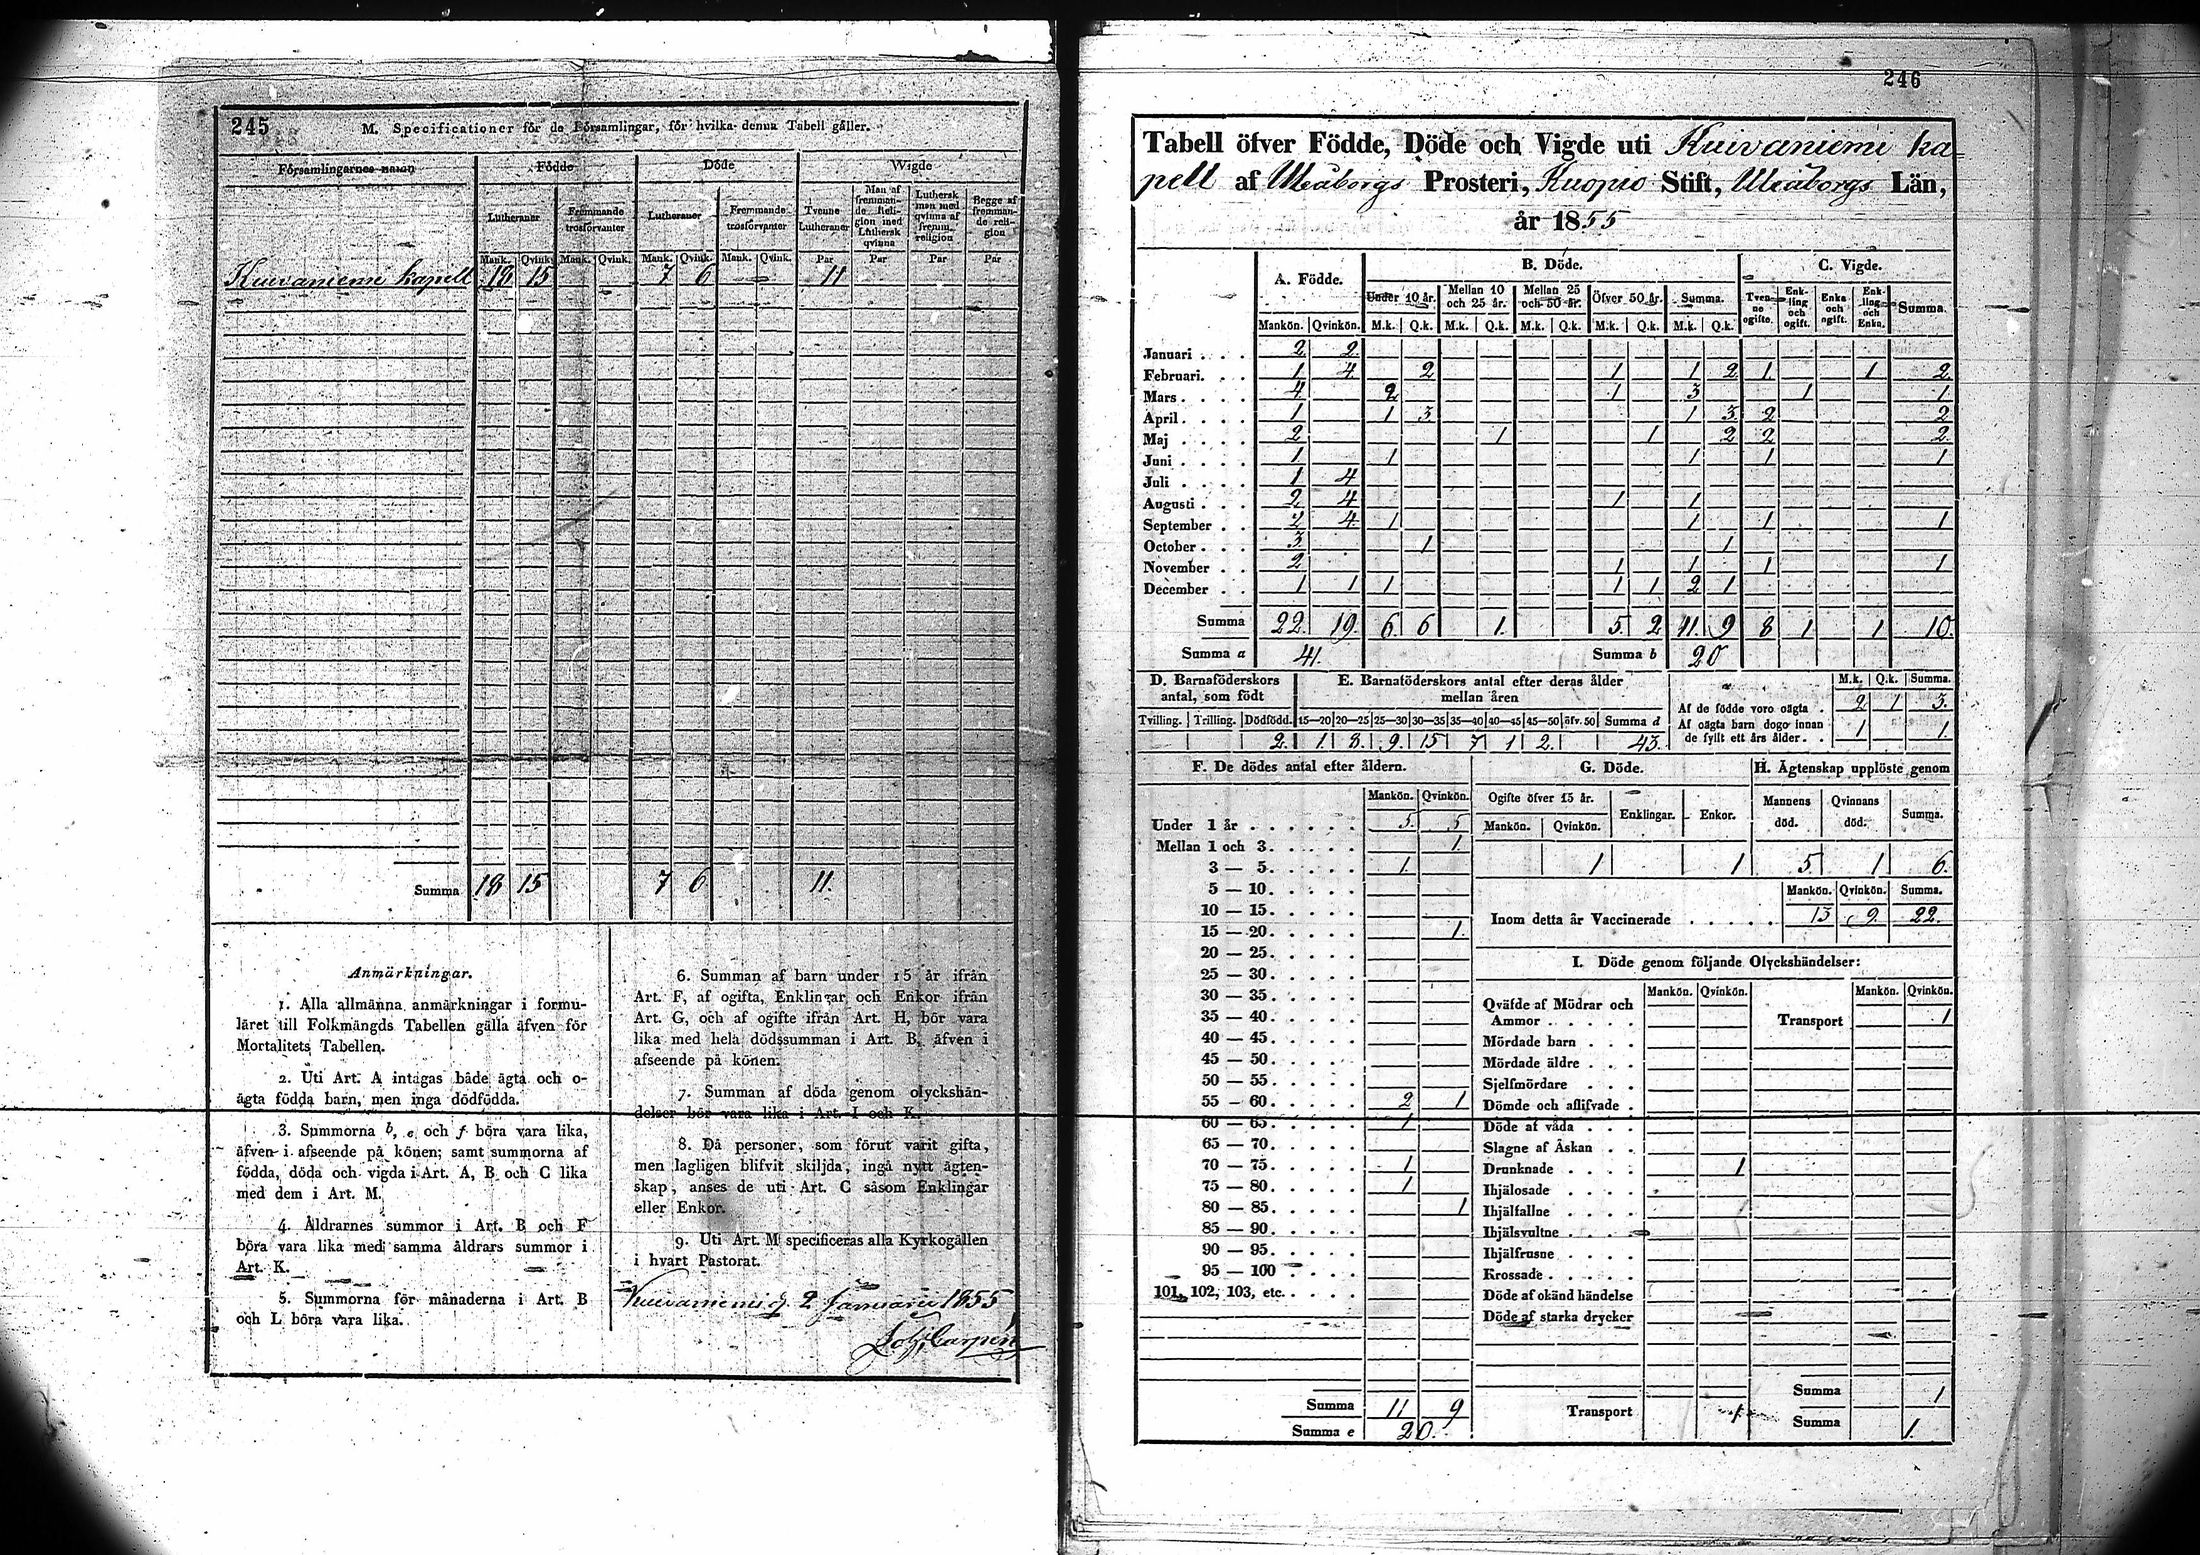 245
M. Specificationer för de Församlingar, för hvilka denna Tabell gäller.
Församlingarnes namn | Födde | Döde | Wigde
Lutheraner | Fremmande trosförvanter | Lutheraner | Fremmande trosförvanter | Tvenne Lutheraner | Man af fremmande Religion med Luthersk qvinna | Luthersk man med qvinna af fremm. religion | Begge af fremmande religion
Mank. | Qvink. | Mank. | Qvink. | Mank. | Qvink. | Mank. | Qvink. | Par | Par | Par | Par
Kuivaniemi kapell 18 15 — — 7 6 — — 11
Summa 18 15 7 6 11.
Anmärkningar.
1. Alla allmänna anmärkningar i formu-
läret till Folkmängds Tabellen gälla äfven för
Mortalitets Tabellen.
2. Uti Art. A intagas både ägta och o-
ägta födda barn, men inga dödfödda.
3. Summorna b, e och f böra vara lika,
äfven i afseende på könen; samt summorna af
födda, döda och vigda i Art. A, B och C lika
med dem i Art. M.
4. Åldrarnes summor i Art. B och F
böra vara lika med samma åldrars summor i
Art. K.
5. Summorna för månaderna i Art. B
och L böra vara lika.
6. Summan af barn under 15 år ifrån
Art. F, af ogifta, Enklingar och Enkor ifrån
Art. G, och af ogifte ifrån Art. H, bör vara
lika med hela dödssumman i Art. B, äfven i
afseende på könen.
7. Summan af döda genom olyckshän-
delser bör vara lika i Art. I och K.
8. Då personer, som förut varit gifta,
men lagligen blifvit skiljda, ingå nytt ägten-
skap, anses de uti Art. C såsom Enklingar
eller Enkor.
9. Uti Art. M specificeras alla Kyrkogällen
i hvart Pastorat.
Kuivaniemi d. 2 Januarii 1855
Carpén
246
Tabell öfver Födde, Döde och Vigde uti Kuivaniemi ka=
pell af Uleåborgs Prosteri, Kuopio Stift, Uleåborgs Län,
år 1855
A. Födde. | B. Döde. | C. Vigde.
Under 10 år. | Mellan 10 och 25 år. | Mellan 25 och 50 år. | Öfver 50 år. | Summa. | Tvenne ogifte. | Enkling och ogift. | Enka och ogift. | Enkling och Enka. | Summa.
Mankön. | Qvinkön. | M.k. | Q.k. | M.k. | Q.k. | M.k. | Q.k. | M.k. | Q.k. | M.k. | Q.k.
Januari . . . . 2 2
Februari. . . 1 4 2 1 1 2 1 1 2
Mars . . . . 4 2 1 3 1 1
April . . . . 1 1 3 1 3 2 2
Maj . . . . 2 1 1 2 2 2
Juni . . . . 1 1 1 1 1
Juli . . . . 1 4
Augusti . . . 2 4 1 1
September . . 2 4 1 1 1 1
October . . . 3 1 1
November . . 2 1 1 1 1
December . . 1 1 1 1 1 2 1
Summa 22. 19. 6. 6 1. 5. 2 11. 9 8 1 1 10.
Summa a 41. Summa b 20
D. Barnaföderskors antal, som födt | E. Barnaföderskors antal efter deras ålder mellan åren | M.k. | Q.k. | Summa.
Tvilling. | Trilling. | Dödfödd. | 15—20 | 20—25 | 25—30 | 30—35 | 35—40 | 40—45 | 45—50 | öfv. 50 | Summa d
2. 1. 8. 9. 15 7 1 2. 43.
Af de födde voro oägta . 2 1 3.
Af oägta barn dogo innan
de fyllt ett års ålder . . 1 1.
F. De dödes antal efter åldern.
Mankön. | Qvinkön.
Under 1 år . . . . . . 5. 5
Mellan 1 och 3. . . . . 1.
3 — 5. . . . . 1.
5 — 10. . . . .
10 — 15. . . . .
15 — 20. . . . . 1.
20 — 25. . . . .
25 — 30. . . . .
30 — 35. . . . .
35 — 40. . . . .
40 — 45. . . . .
45 — 50. . . . .
50 — 55. . . . .
55 — 60. . . . . 2 1
60 — 65. . . . . 1
65 — 70. . . . .
70 — 75. . . . . 1
75 — 80. . . . . 1
80 — 85. . . . . 1
85 — 90. . . . .
90 — 95. . . . .
95 — 100 . . . .
101, 102, 103, etc. . . . .
Summa 11 9
Summa e 20.
G. Döde. | H. Ägtenskap upplöste genom
Ogifte öfver 15 år. | Enklingar. | Enkor. | Mannens död. | Qvinnans död. | Summa.
Mankön. | Qvinkön.
1 1 5 1 6.
Mankön. | Qvinkön. | Summa.
Inom detta år Vaccinerade . . . . . 13 9. 22.
I. Döde genom följande Olyckshändelser:
Mankön. | Qvinkön. | Mankön. | Qvinkön.
Qväfde af Mödrar och
Ammor . . . . .
Transport 1
Mördade barn . . .
Mördade äldre . . .
Sjelfmördare . . .
Dömde och aflifvade .
Döde af våda . . .
Slagne af Åskan . .
Drunknade . . . . 1
Ihjälosade . . . .
Ihjälfallne . . . .
Ihjälsvultne . . . .
Ihjälfrusne . . . .
Krossade . . . . .
Döde af okänd händelse
Döde af starka drycker
Summa 1
Transport 1.
Summa 1.